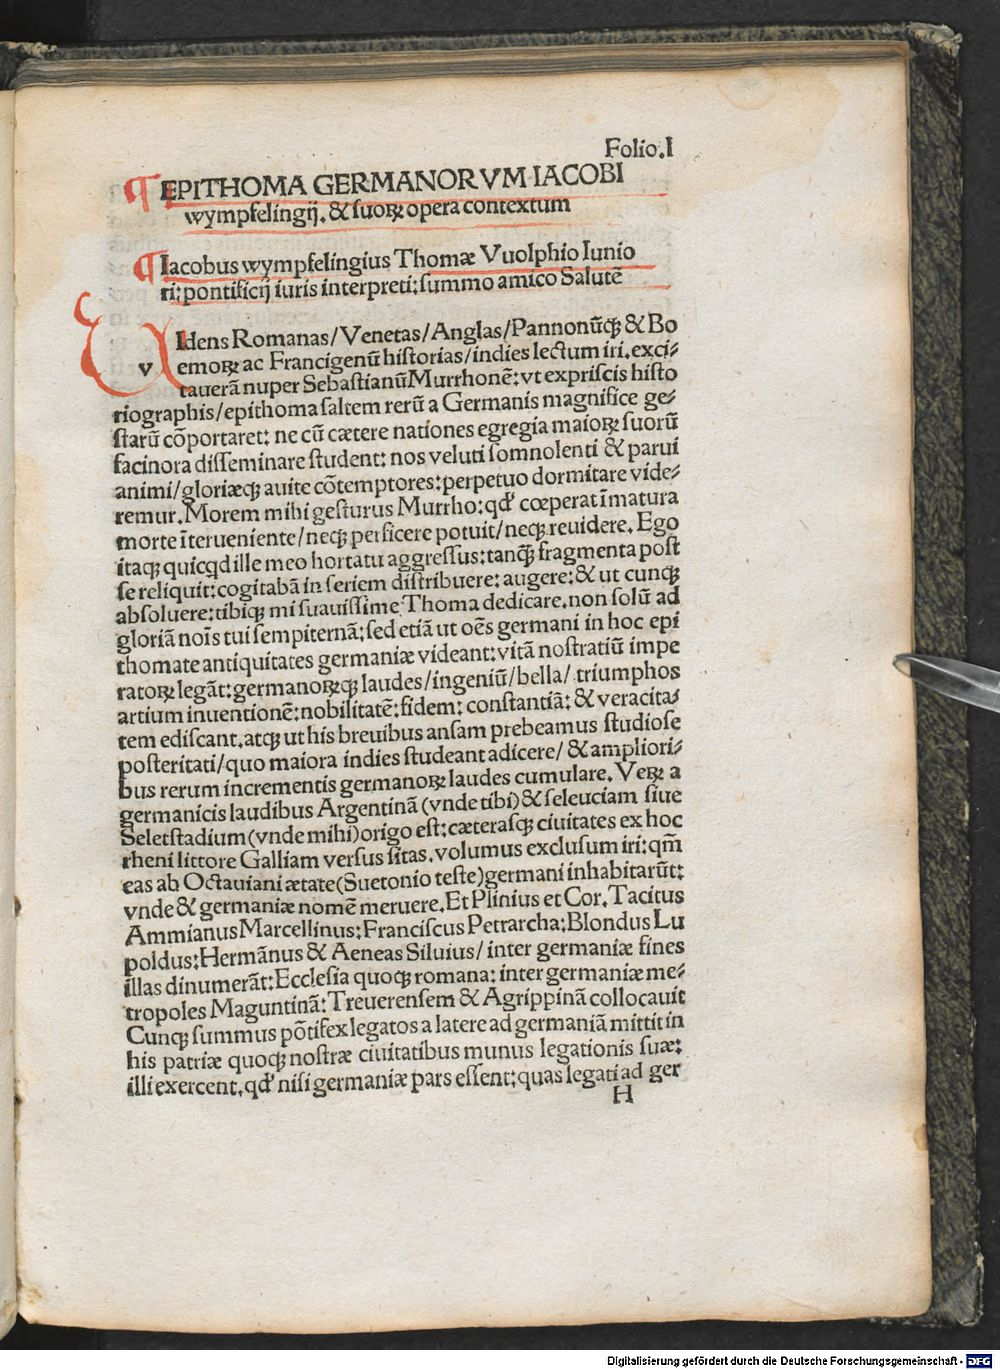 Folio.I
¶EPITHOMA GERMANORVM IACOBI
wympfelingij. & suoꝝ opera contextum
¶Iacobus wympfelingius Thomæ Vuolphio Iunio
ri: pontificij iuris interpreti: summo amico Salutē
vIdens Romanas/Venetas/Anglas/Pannonūqꝫ & Bo
emoꝝ ac Francigenū historias/indies lectum iri. exci⸗
tauerā nuper Sebastianū Murrhonē: vt expriscis histo
riographis/epithoma saltem rerū a Germanis magnifice ge⸗
starū cōportaret: ne cū cætere nationes egregia maioꝝ suorū
facinora disseminare student: nos veluti somnolenti & parui
animi/gloriæqꝫ auite cōtemptores: perpetuo dormitare vide⸗
remur. Morem mihi gesturus Murrho: qd' cœperat īmatura
morte īterueniente/neqꝫ perficere potuit/neqꝫ reuidere. Ego
itaqꝫ quicqd ille meo hortatu aggressus: tanqꝫ̄ fragmenta post
se reliquit: cogitabā in seriem distribuere: augere: & ut cunqꝫ
absoluere: tibiqꝫ mi suauissime Thoma dedicare. non solū ad
gloriā noīs tui sempiternā: sed etiā ut oēs germani in hoc epi
thomate antiquitates germaniæ videant: vitā nostratiū impe
ratoꝝ legāt: germanoꝝqꝫ laudes/ingeniū/bella/triumphos
artium inuentionē: nobilitatē: fidem: constantiā: & veracita⸗
tem ediscant. atqꝫ ut his breuibus ansam prebeamus studiose
posteritati/quo maiora indies studeant adicere/& ampliori⸗
bus rerum incrementis germanoꝝ laudes cumulare. Veꝝ a
germanicis laudibus Argentinā (vnde tibi) & seleuciam siue
Seletstadium (vnde mihi) origo est: cæterasqꝫ ciuitates ex hoc
rheni littore Galliam versus sitas. volumus exclusum iri: qm̄
eas ab Octauiani ætate (Suetonio teste) germani inhabitarūt:
vnde & germaniæ nomē meruere. Et Plinius et Cor. Tacitus
Ammianus Marcellinus: Franciscus Petrarcha: Blondus Lu
poldus: Hermānus & Aeneas Siluius/inter germaniæ fines
illas dinumerāt: Ecclesia quoqꝫ romana: inter germaniæ me⸗
tropoles Maguntinā: Treuerensem & Agrippinā collocauit
Cunqꝫ summus pōtifex legatos a latere ad germaniā mittit in
his patriæ quoqꝫ nostræ ciuitatibus munus legationis suæ:
illi exercent. qd' nisi germaniæ pars essent: quas legati ad ger
H
Digitalisierung gefördert durch die Deutsche Forschungsgemeinschaft - DFG